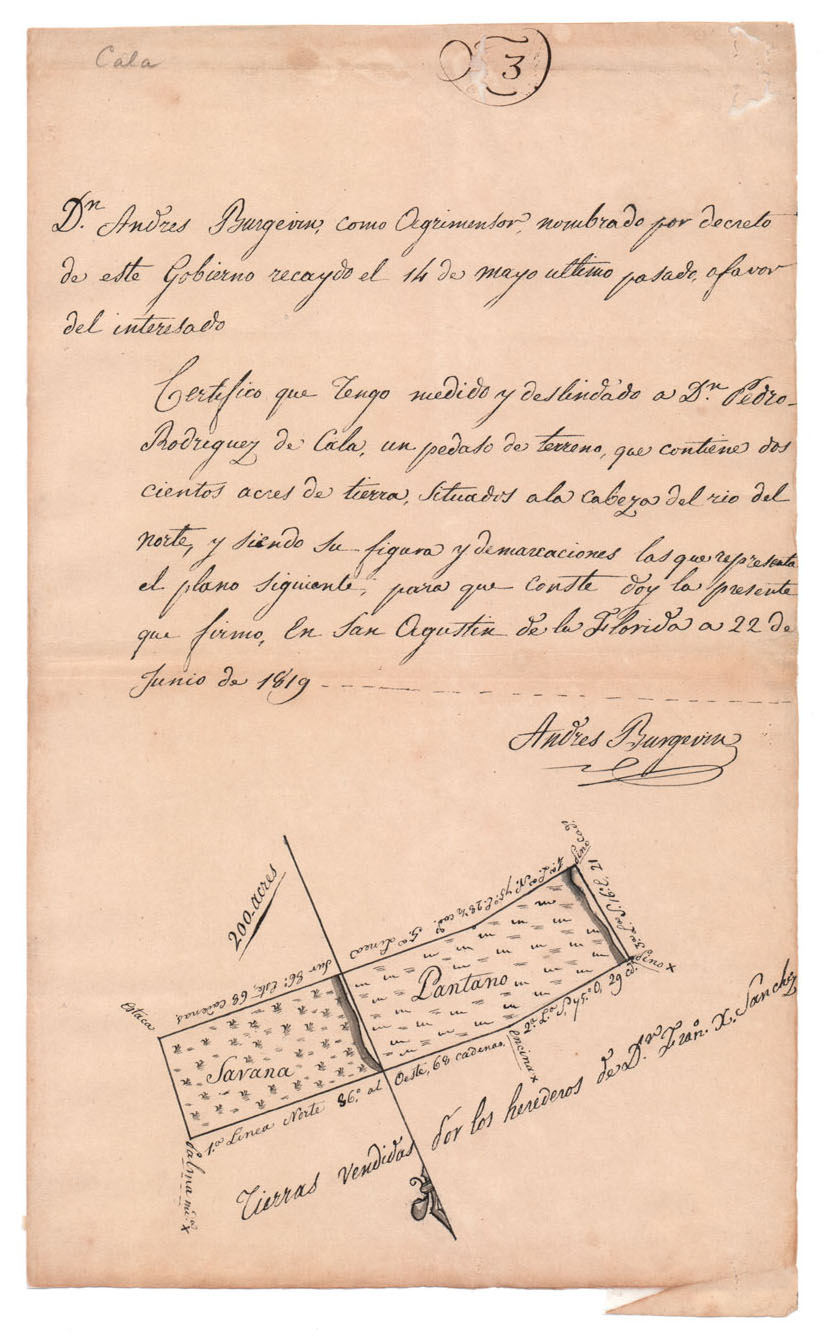 Cala
3
D.n Andres Burgevin, como Agrimensor, nombrado por decreto
de este Gobierno recaydo el 14 de mayo ultimo pasado, a favor
del interesado
Certifico que Tengo medido y deslindado a D.n Pedro-
Rodriguez de Cala, un pedaso de terreno, que contiene dos
cientos acres de tierra, situados a la cabeza del rio del
norte, y siendo su figura y demarcaciones las que representa
el plano siguiente; para que conste doy la presente
que firmo, En San Agustin de la Florida a 22 de
Junio de 1819
Andres Burgevin
200 acres
Estaca
Sur 86.º Este, 68 cadenas
5.a Linea
4.a L.a N. 75.º E. 28½ cad.s
Pino
3.a L.a S. 16.º E. 21
Pino x
Savana
Pantano
1.a Linea Norte 86.º al Oeste, 68 cadenas.
Encina x
2.a L.a S. 75.º O, 29 cd.s
Palma x
Tierras vendidas por los herederos de D.n Fran.o X. Sanchez